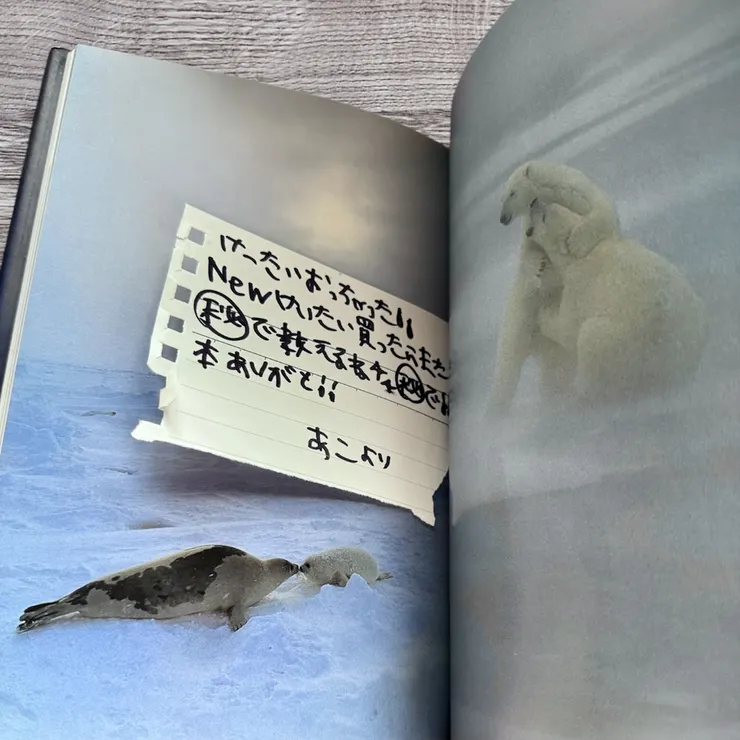 けいたいおっちゃった!!
Newけいたい買ったらまた
㊙で教えるネ ㊙で
本ありがと!!
あこより